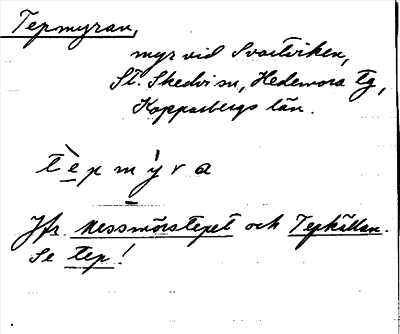 Tepmyran,
myr vid Svartviken,
St. Skedvi sn, Hedemora tg,
Kopparbergs län.
tèpmýra
Jfr Messmörstepet och Tepkällan.
Se tep!